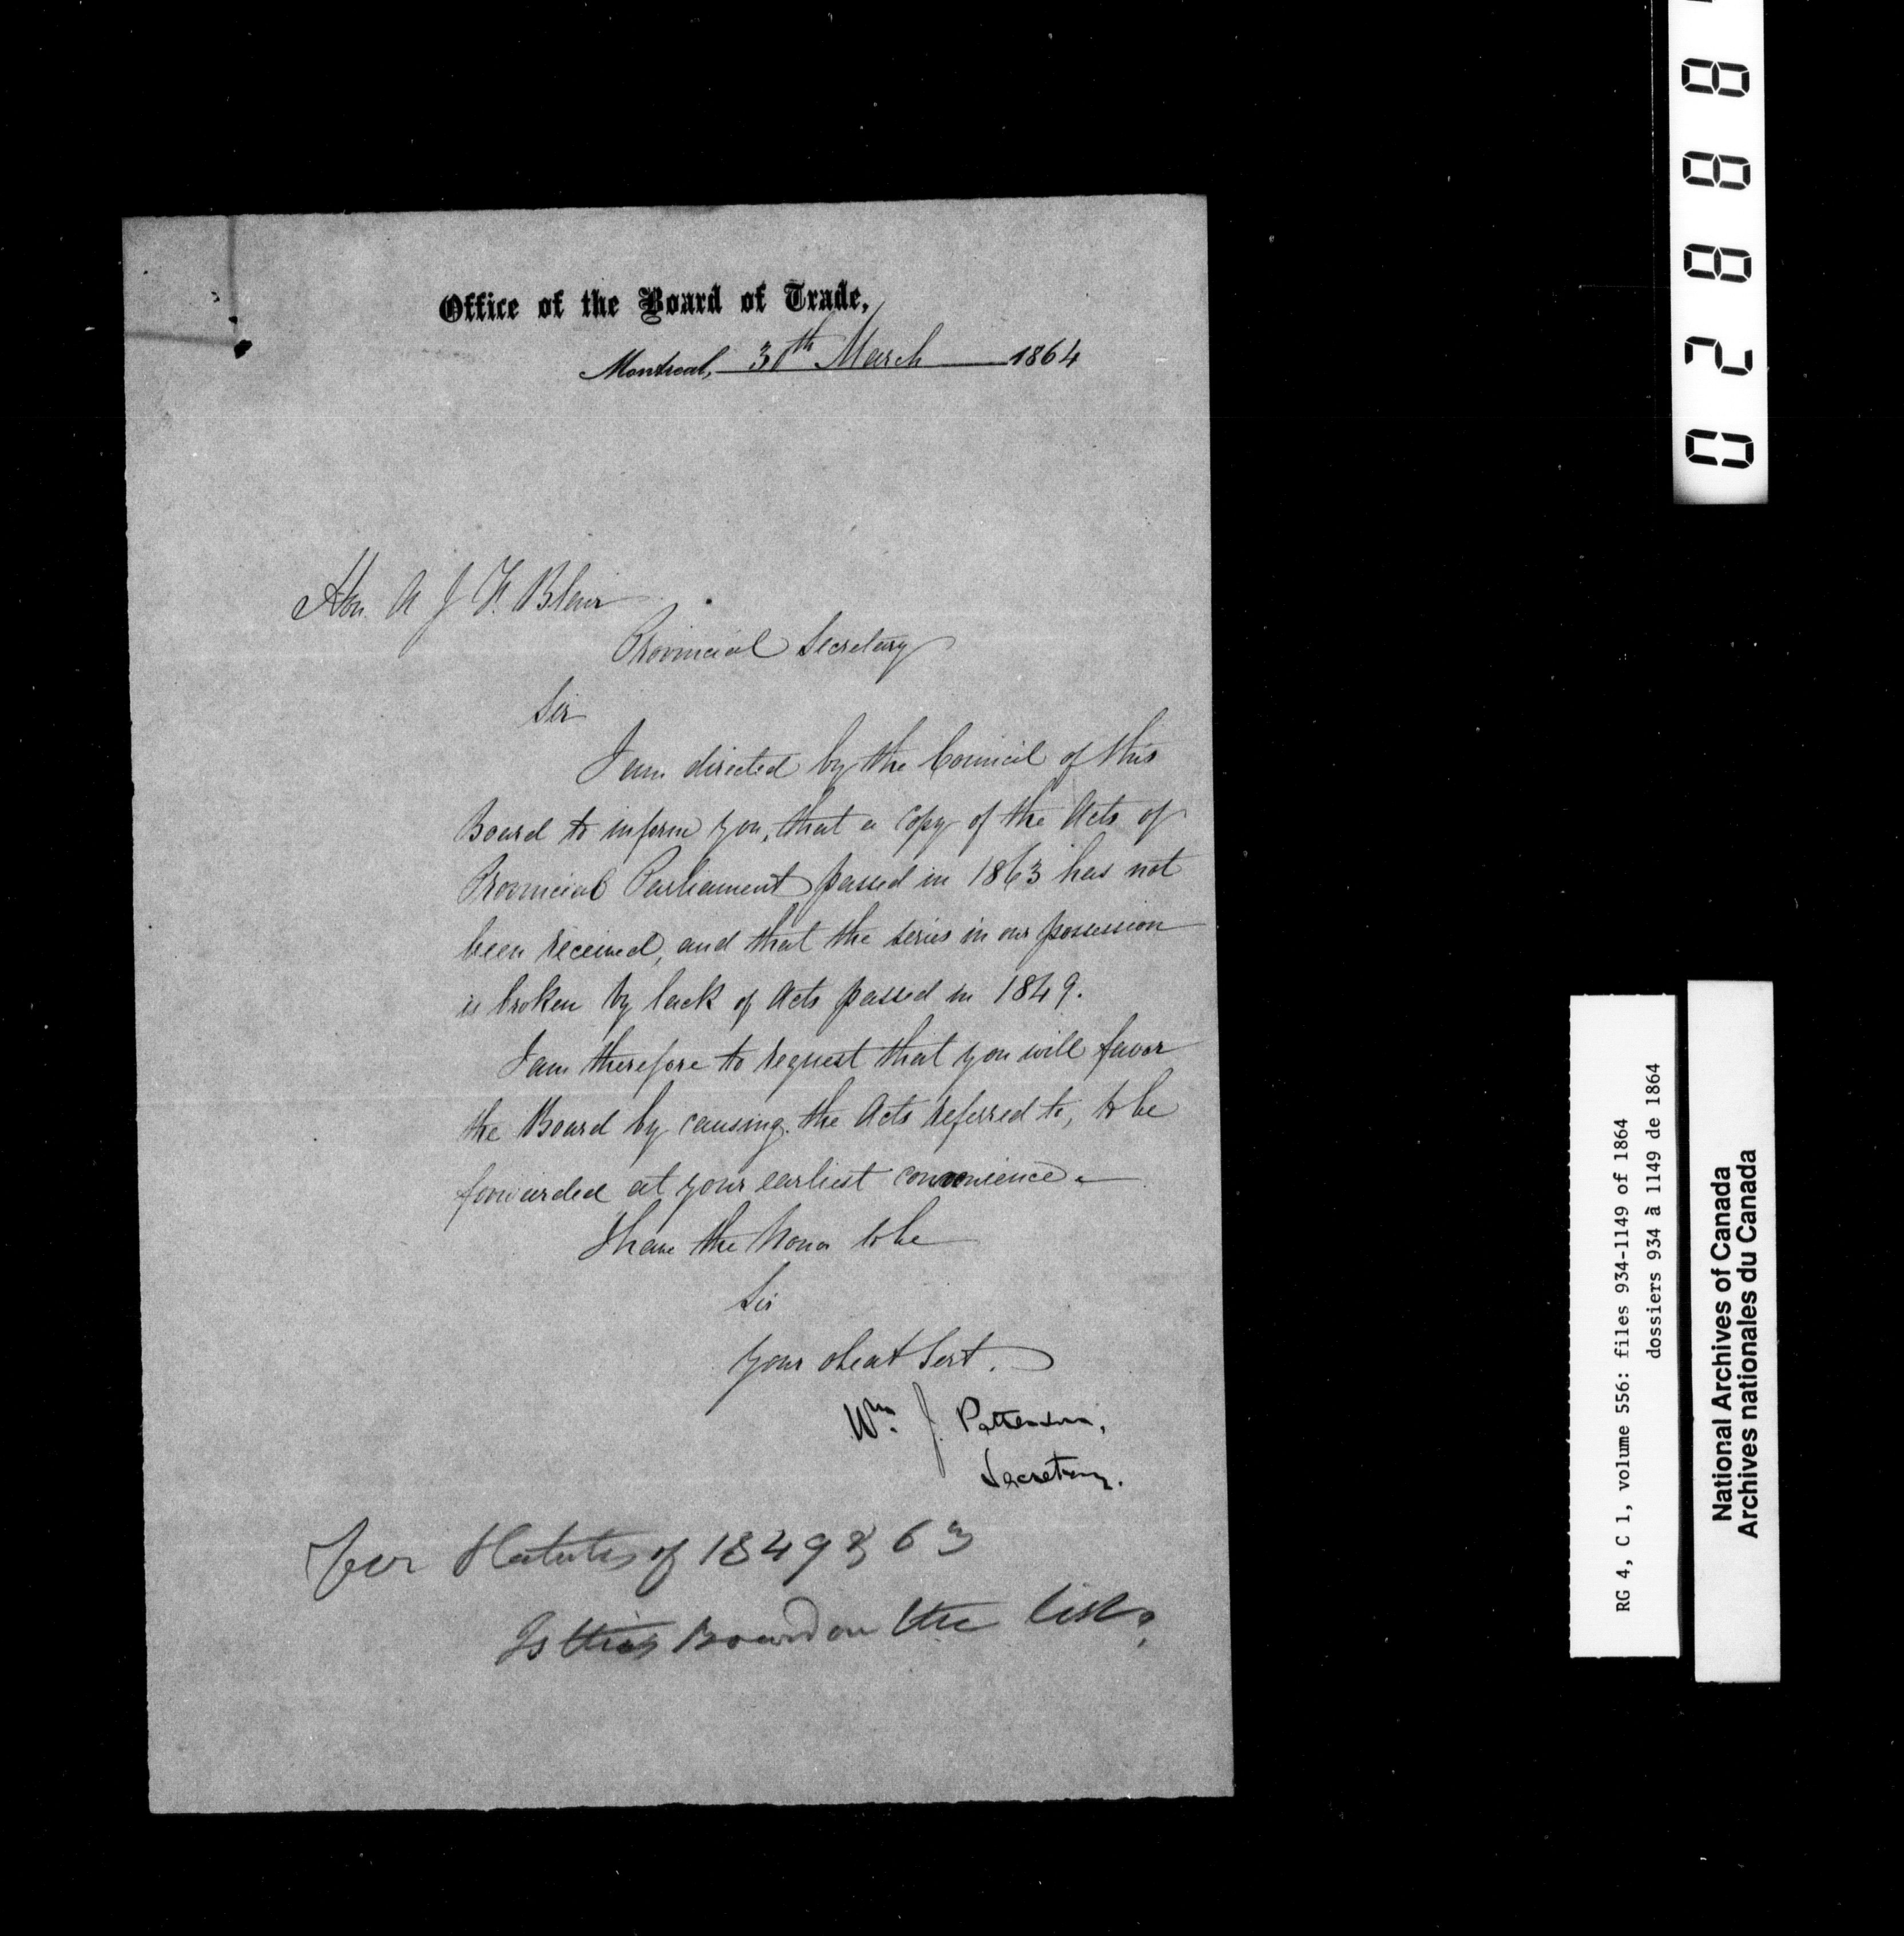 Office of the Board of Trade,
Montreal, 30th March 1864
Hon. A J F. Blair
Provincial Secretary
Sir
I am directed by the Council of this
Board to inform you, that a copy of the Acts of
Provincial Parliament passed in 1863 has not
been received, and that the series in our possession
is broken by lack of Acts passed in 1849.
I am therefore to request that you will favor
the Board by causing the Acts referred to, to be
forwarded at your earliest convenience.
I have the honor to be
Sir
your obeat Servt.
Wm. J. Patterson,
Secretary.
for Statutes of 1849 & 63
Is this Board on the list?
0288
RG 4, C 1, volume 556: files 934-1149 of 1864
dossiers 934 à 1149 de 1864
National Archives of Canada
Archives nationales du Canada